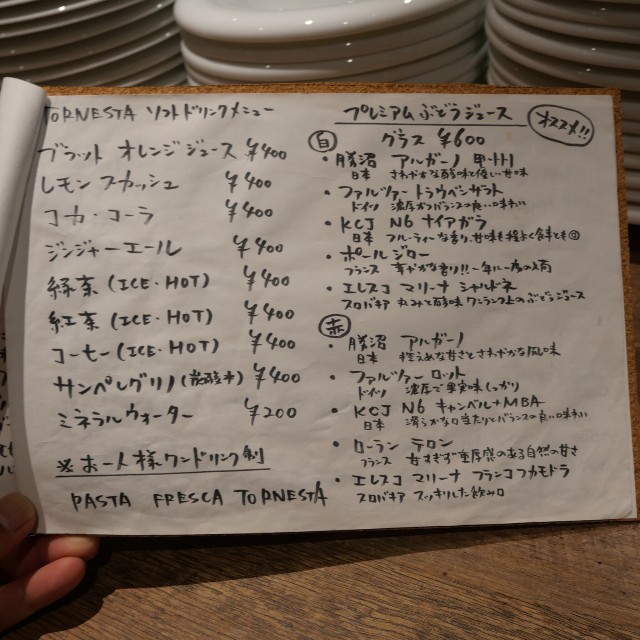 TORNESTA ソフトドリンクメニュー
ブラット オレンジジュース ¥400
レモンスカッシュ ¥400
コカ・コーラ ¥400
ジンジャーエール ¥400
緑茶 (ICE・HOT) ¥400
紅茶 (ICE・HOT) ¥400
コーヒー (ICE・HOT) ¥400
サンペレグリノ (炭酸水) ¥400
ミネラルウォーター ¥200
※お一人様ワンドリンク制
PASTA FRESCA TORNESTA
プレミアムぶどうジュース
オススメ!!
白 グラス ¥600
・勝沼 アルガーノ 甲州
日本 さわやかな酸味と優しい甘味
・ファルツァー トラウベンザフト
ドイツ 濃厚かつバランスの良い味わい
・KCJ N6 ナイアガラ
日本 フルーティーな香り、甘味も程よく食事も◎
・ポール ジロー
フランス 華やかな香り!! 一年に一度の入荷
・エレスコ マリーナ シャルドネ
スロバキア 丸みと酸味 ワンランク上のぶどうジュース
赤
・勝沼 アルガーノ
日本 控えめな甘さとさわやかな風味
・ファルツァー ロット
ドイツ 濃厚で果実味しっかり
・KCJ N6 キャンベル+MBA
日本 滑らかな口当たりとバランスの良い味わい
・ローラン テロン
フランス 甘すぎず重厚感のある自然の甘さ
・エレスコ マリーナ フランコフカモドラ
スロバキア スッキリした飲み口